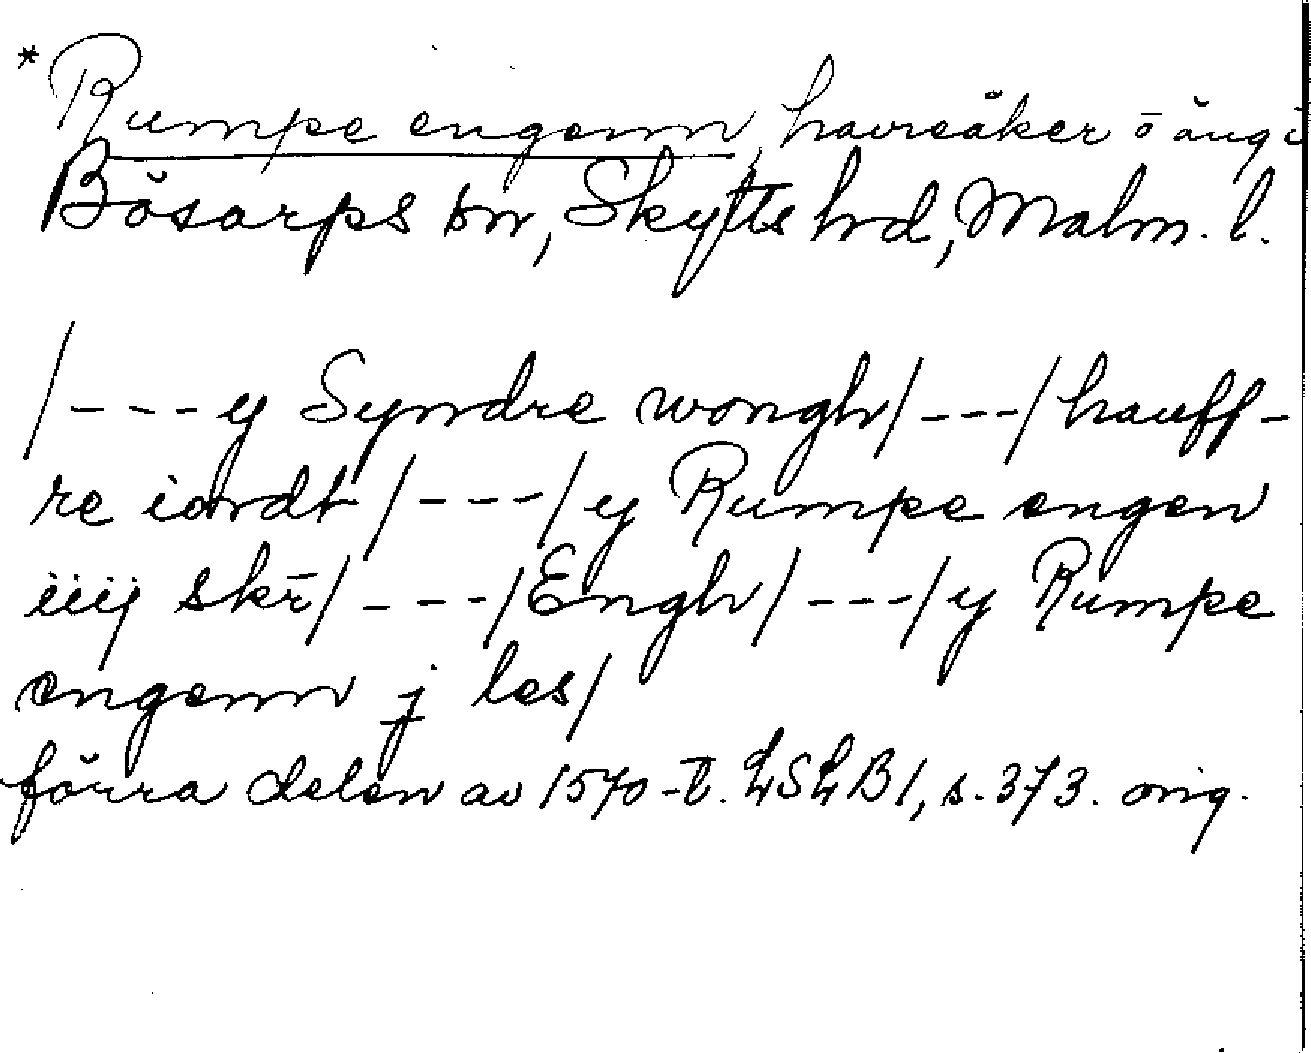 * Rumpe engenn, havreåker o äng i
Bösarps sn, Skytts hrd, Malm. l.
/---y Syndre wongh/---/hauff-
re iordt/---/y Rumpe engen
iiij skr̄/---/Engh/---/y Rumpe
engenn j les/
förra delen av 1570-t. LSLB1, s. 373. orig.